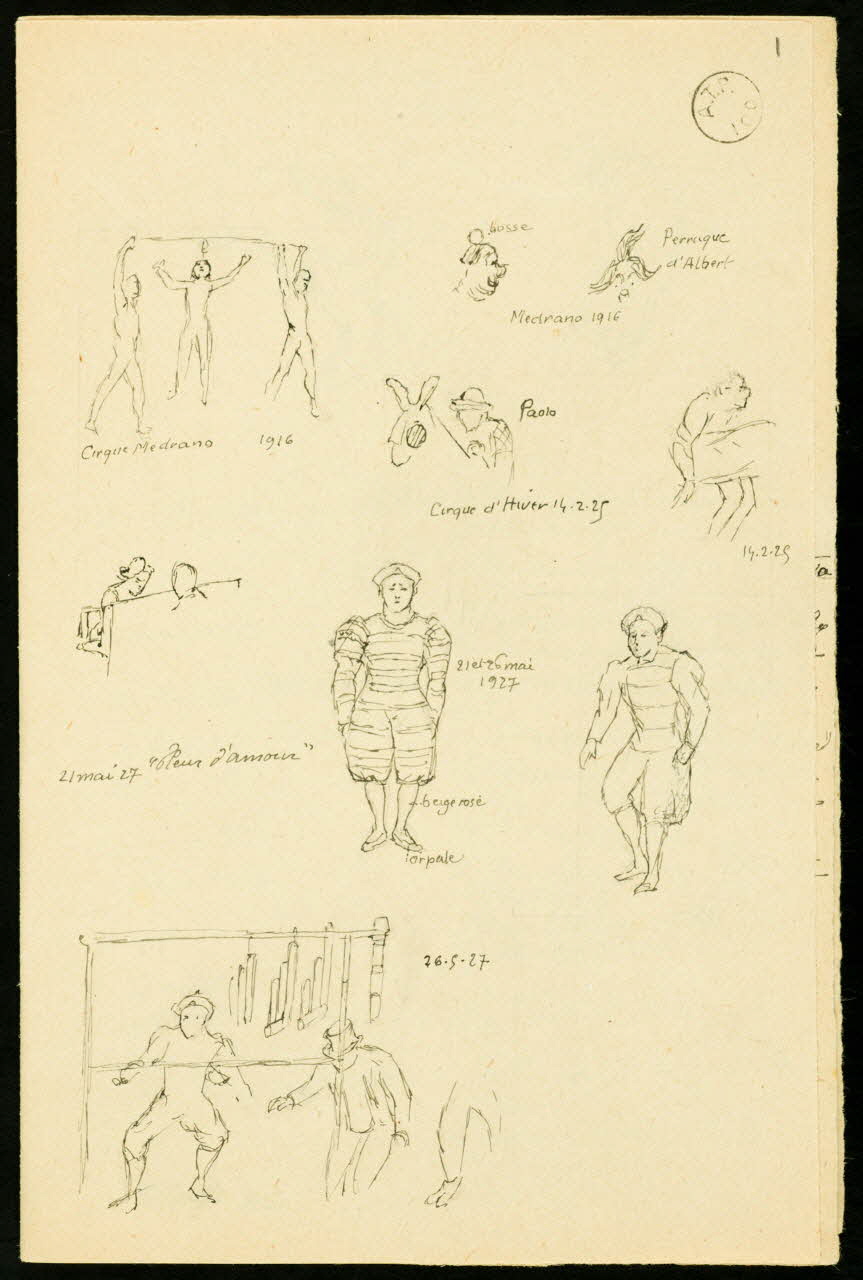 1
bosse
Perruque
d'Albert
Medrano 1916
Cirque Medrano 1916
Paolo
Cirque d'Hiver 14.2.25
14.2.25
21 et 26 mai
1927
21 mai 27 d'amour"
beige rosé
26.5.27